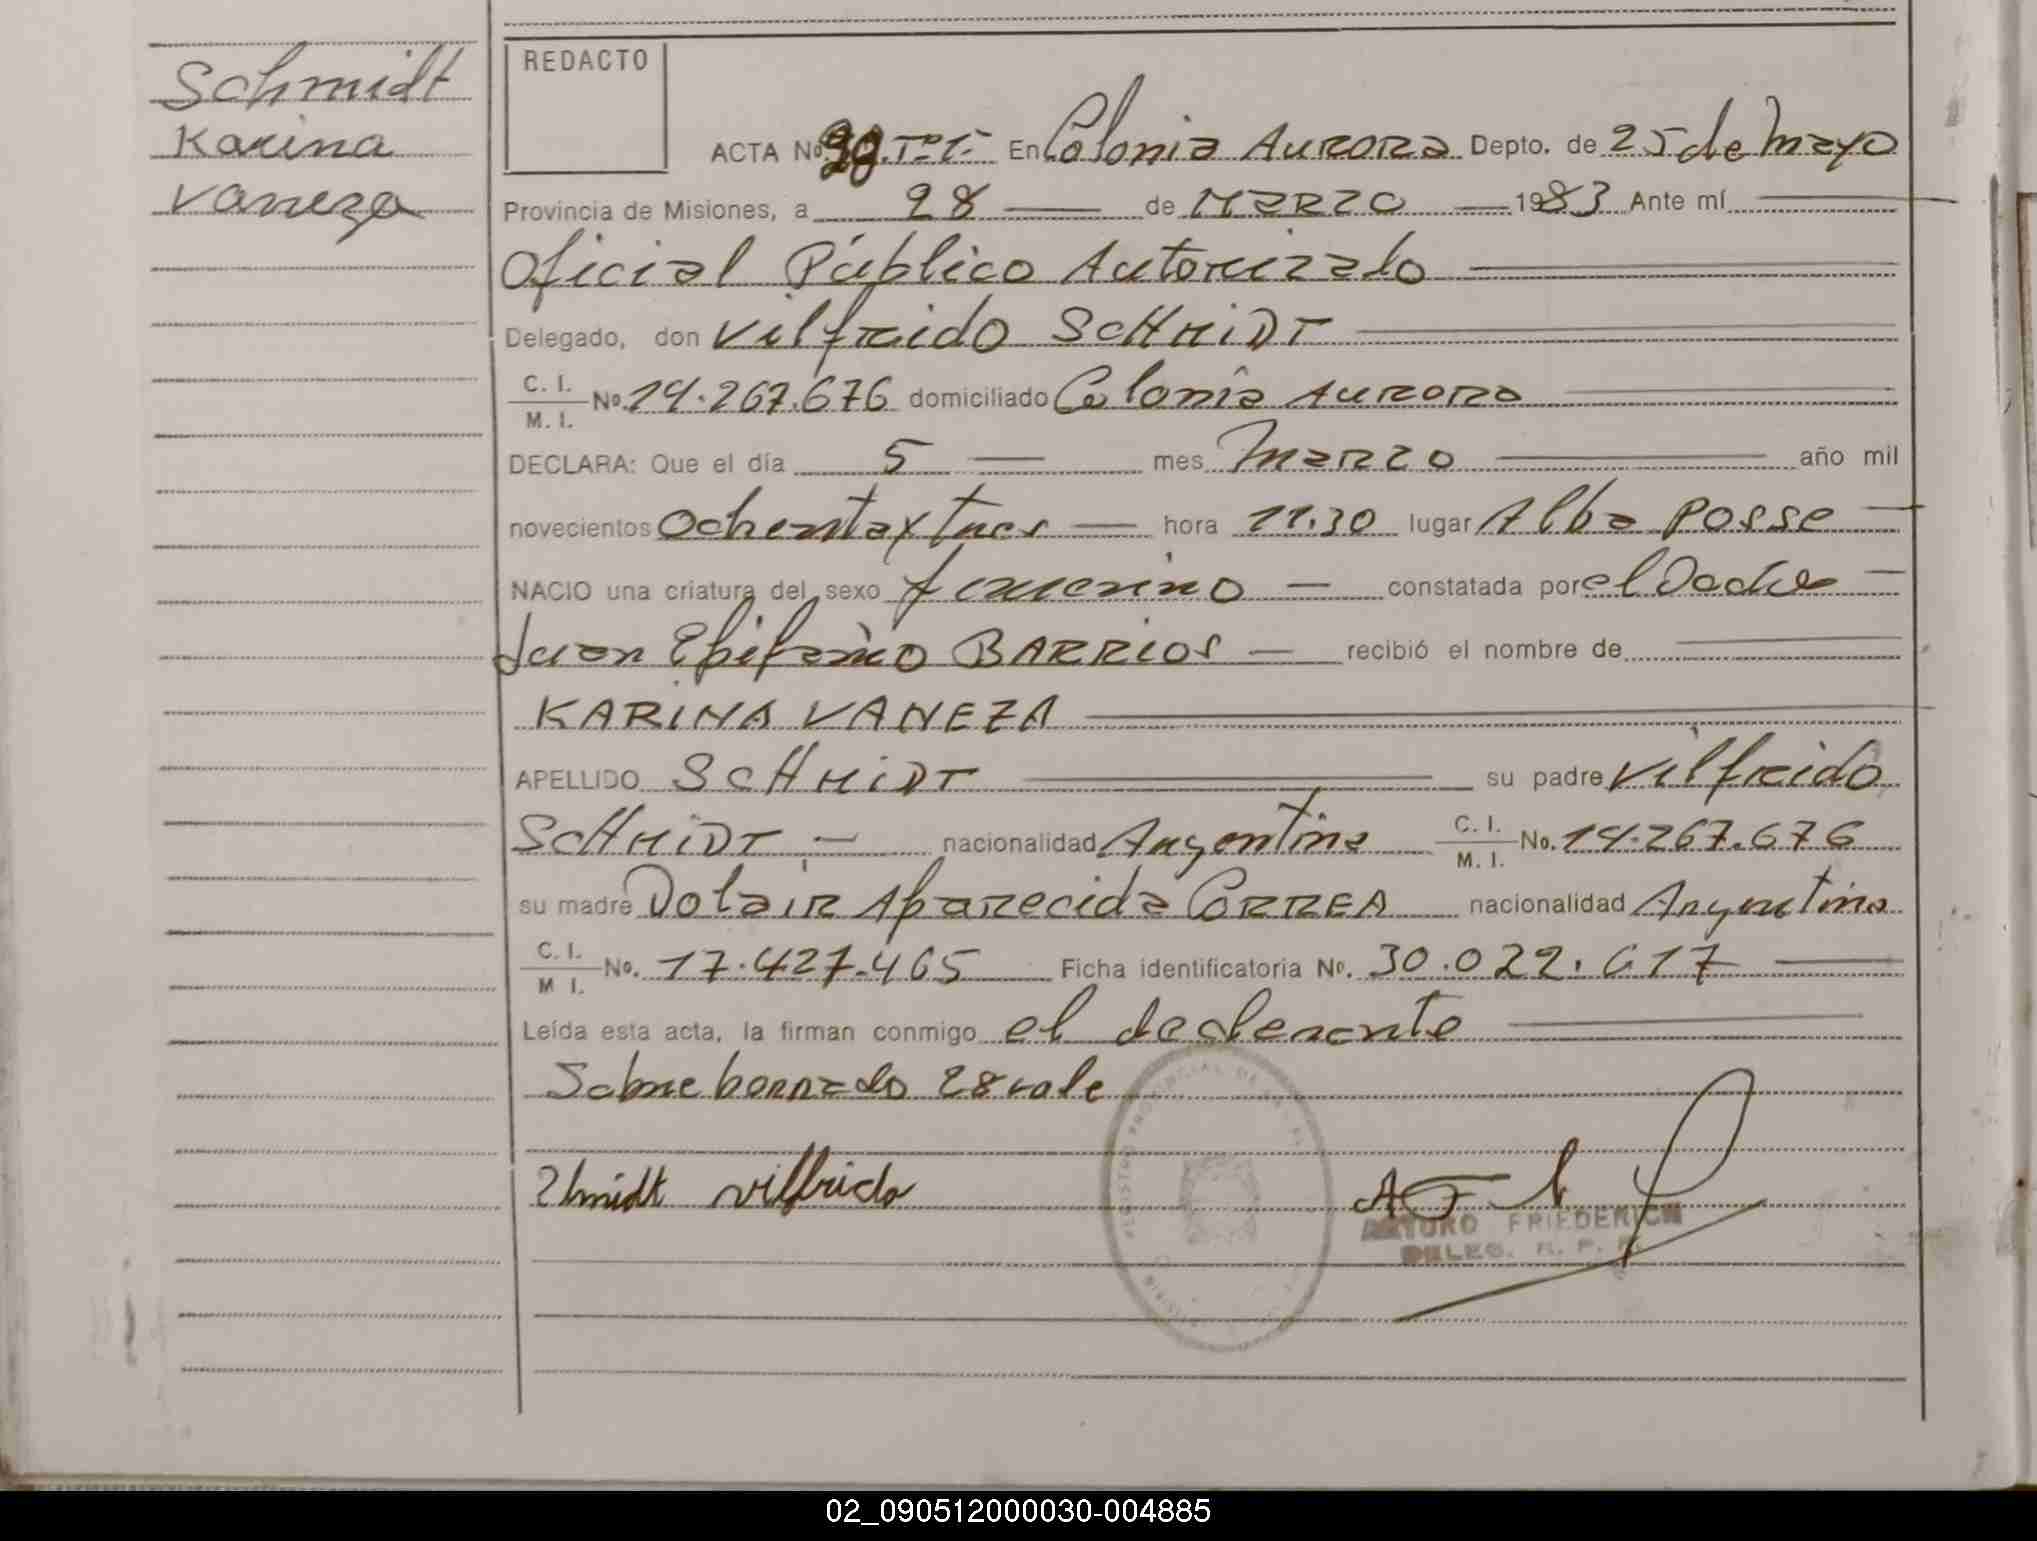 Schmidt
Karina
Vaneza
REDACTO
ACTA No. Tº I- En Colonia Aurora Depto. de 25 de Mayo
Provincia de Misiones, a 28 de Marzo 1983 Ante mí
Oficial Público Autorizado
Delegado, don Vilfrido SCHMIDT
C. I.
M. I. No. 14.267.676 domiciliado Colonia Aurora
DECLARA: Que el día 5 mes Marzo año mil
novecientos Ochenta y tres hora 11.30 lugar Alba Posse
NACIO una criatura del sexo femenino constatada por el Doctor
Juan Epifanio BARRIOS recibió el nombre de
KARINA VANEZA
APELLIDO SCHMIDT su padre Vilfrido
SCHMIDT nacionalidad Argentina C. I. M. I. No. 14.267.676
su madre Dolair Aparecida CORREA nacionalidad Argentina
C. I.
M I. No. 17.427.465 Ficha identificatoria No. 30.022.617
Leída esta acta, la firman conmigo el declarante
Sobre borrado 28 vale
Shmidt vilfrido
ARTURO FRIEDERICH
DELEG. R. P. P.
02_090512000030-004885